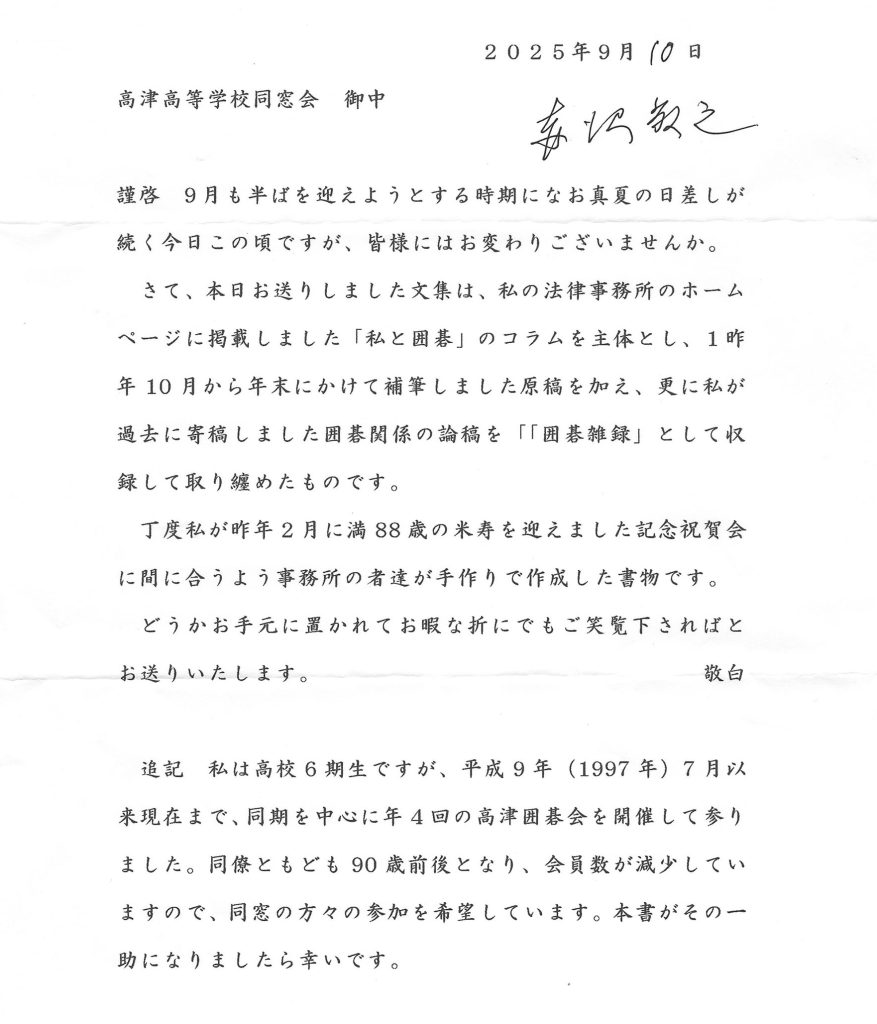 2025年9月10日
高津高等学校同窓会　御中
敏之
謹啓　9月も半ばを迎えようとする時期になお真夏の日差しが
続く今日この頃ですが、皆様にはお変わりございませんか。
さて、本日お送りしました文集は、私の法律事務所のホーム
ページに掲載しました「私と囲碁」のコラムを主体とし、1昨
年10月から年末にかけて補筆しました原稿を加え、更に私が
過去に寄稿しました囲碁関係の論稿を「「囲碁雑録」として収
録して取り纏めたものです。
丁度私が昨年2月に満88歳の米寿を迎えました記念祝賀会
に間に合うよう事務所の者達が手作りで作成した書物です。
どうかお手元に置かれてお暇な折にでもご笑覧下さればと
お送りいたします。　敬白
追記　私は高校6期生ですが、平成9年（1997年）7月以
来現在まで、同期を中心に年4回の高津囲碁会を開催して参り
ました。同僚ともども90歳前後となり、会員数が減少してい
ますので、同窓の方々の参加を希望しています。本書がその一
助になりましたら幸いです。